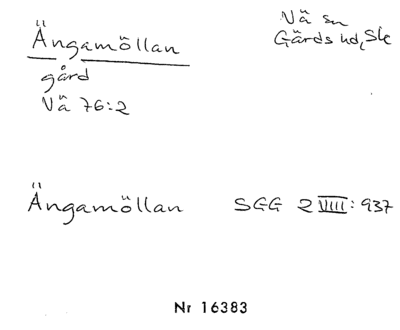 Ängamöllan
Vä sn
Gärds hd, Ske
gård
Vä 76:2
Ängamöllan SGG 2 VIII: 937
Nr 16383